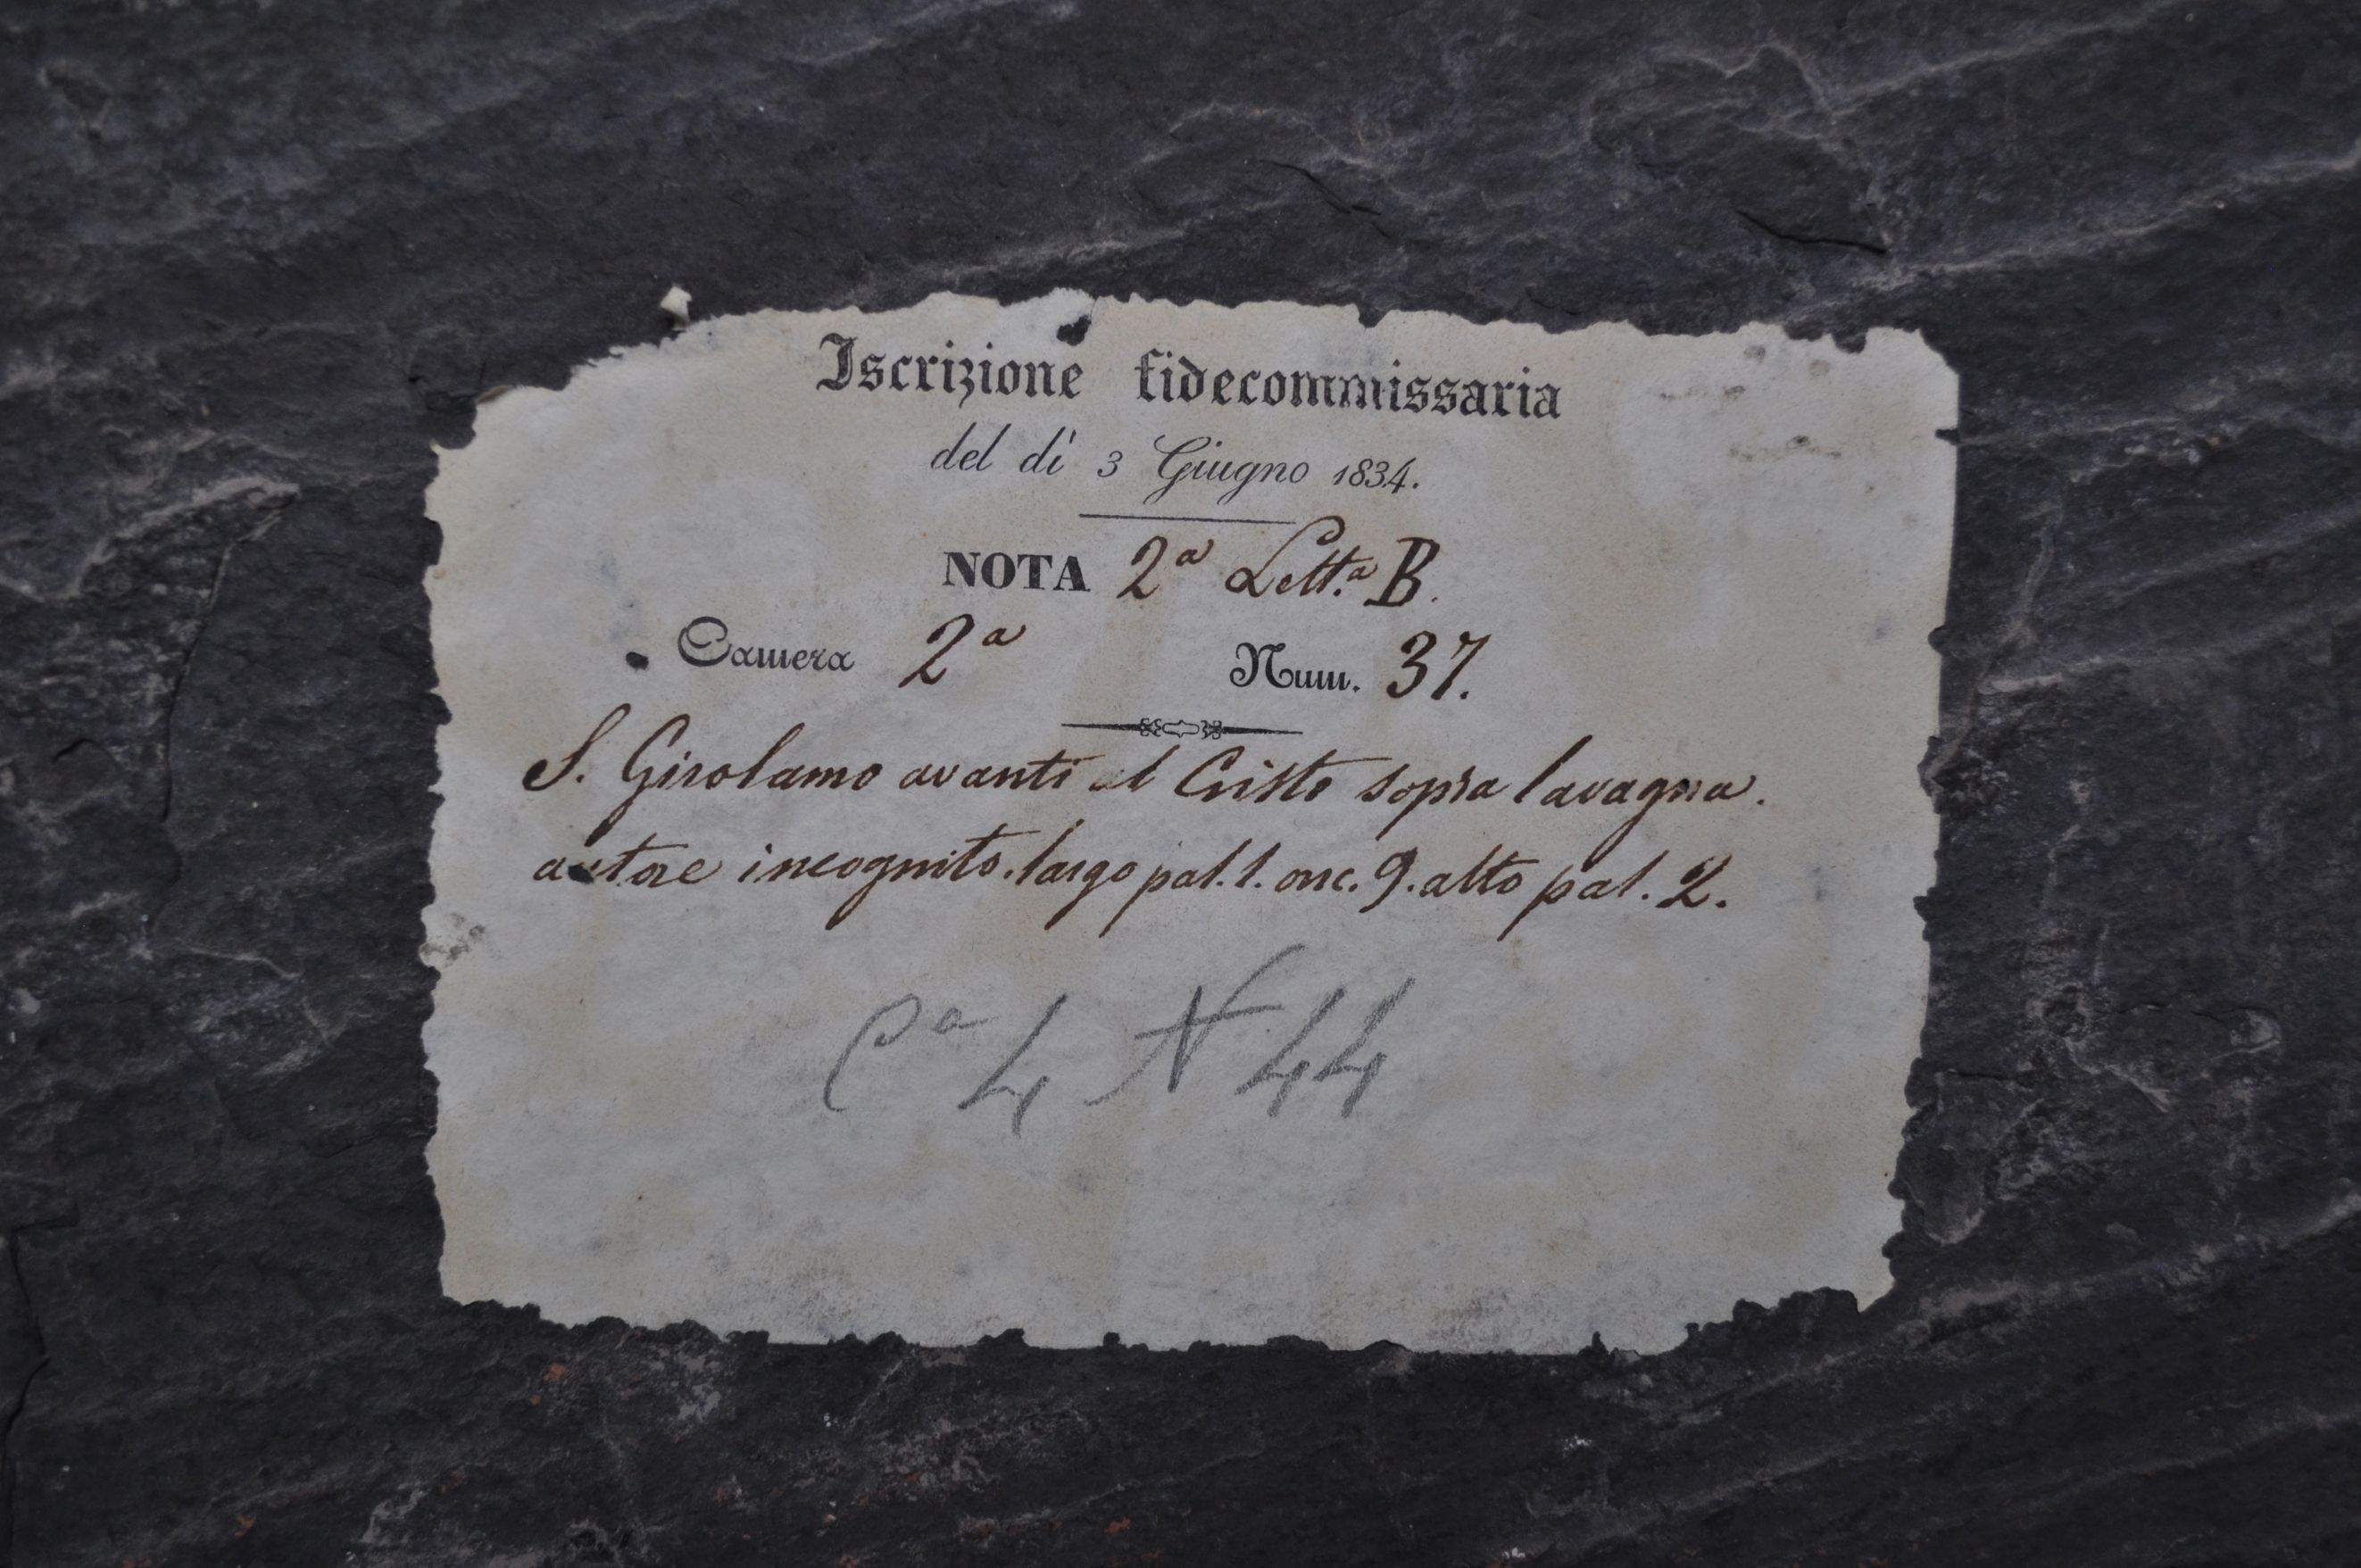 Iscrizione fidecommissaria
del dì 3 Giugno 1834.
NOTA 2ª Lett.ª B.
Camera 2ª Num. 37.
S. Girolamo avanti al Cristo sopra lavagna.
autore incognito. largo pal. 1. onc. 9. alto pal. 2.
Cª 4 N 44